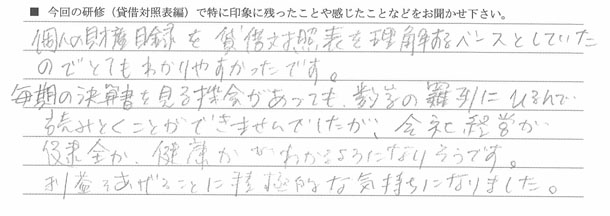 ■ 今回の研修（貸借対照表編）で特に印象に残ったことや感じたことなどをお聞かせ下さい。
個人の財産目録を貸借対照表を理解するベースとしていた
のでとてもわかりやすかったです。
毎期の決算書を見る機会があっても、数字の羅列にひるんで
読みとくことができませんでしたが、会社経営が
健全か、健康かがわかるようになりそうです。
利益をあげることに積極的な気持ちになりました。